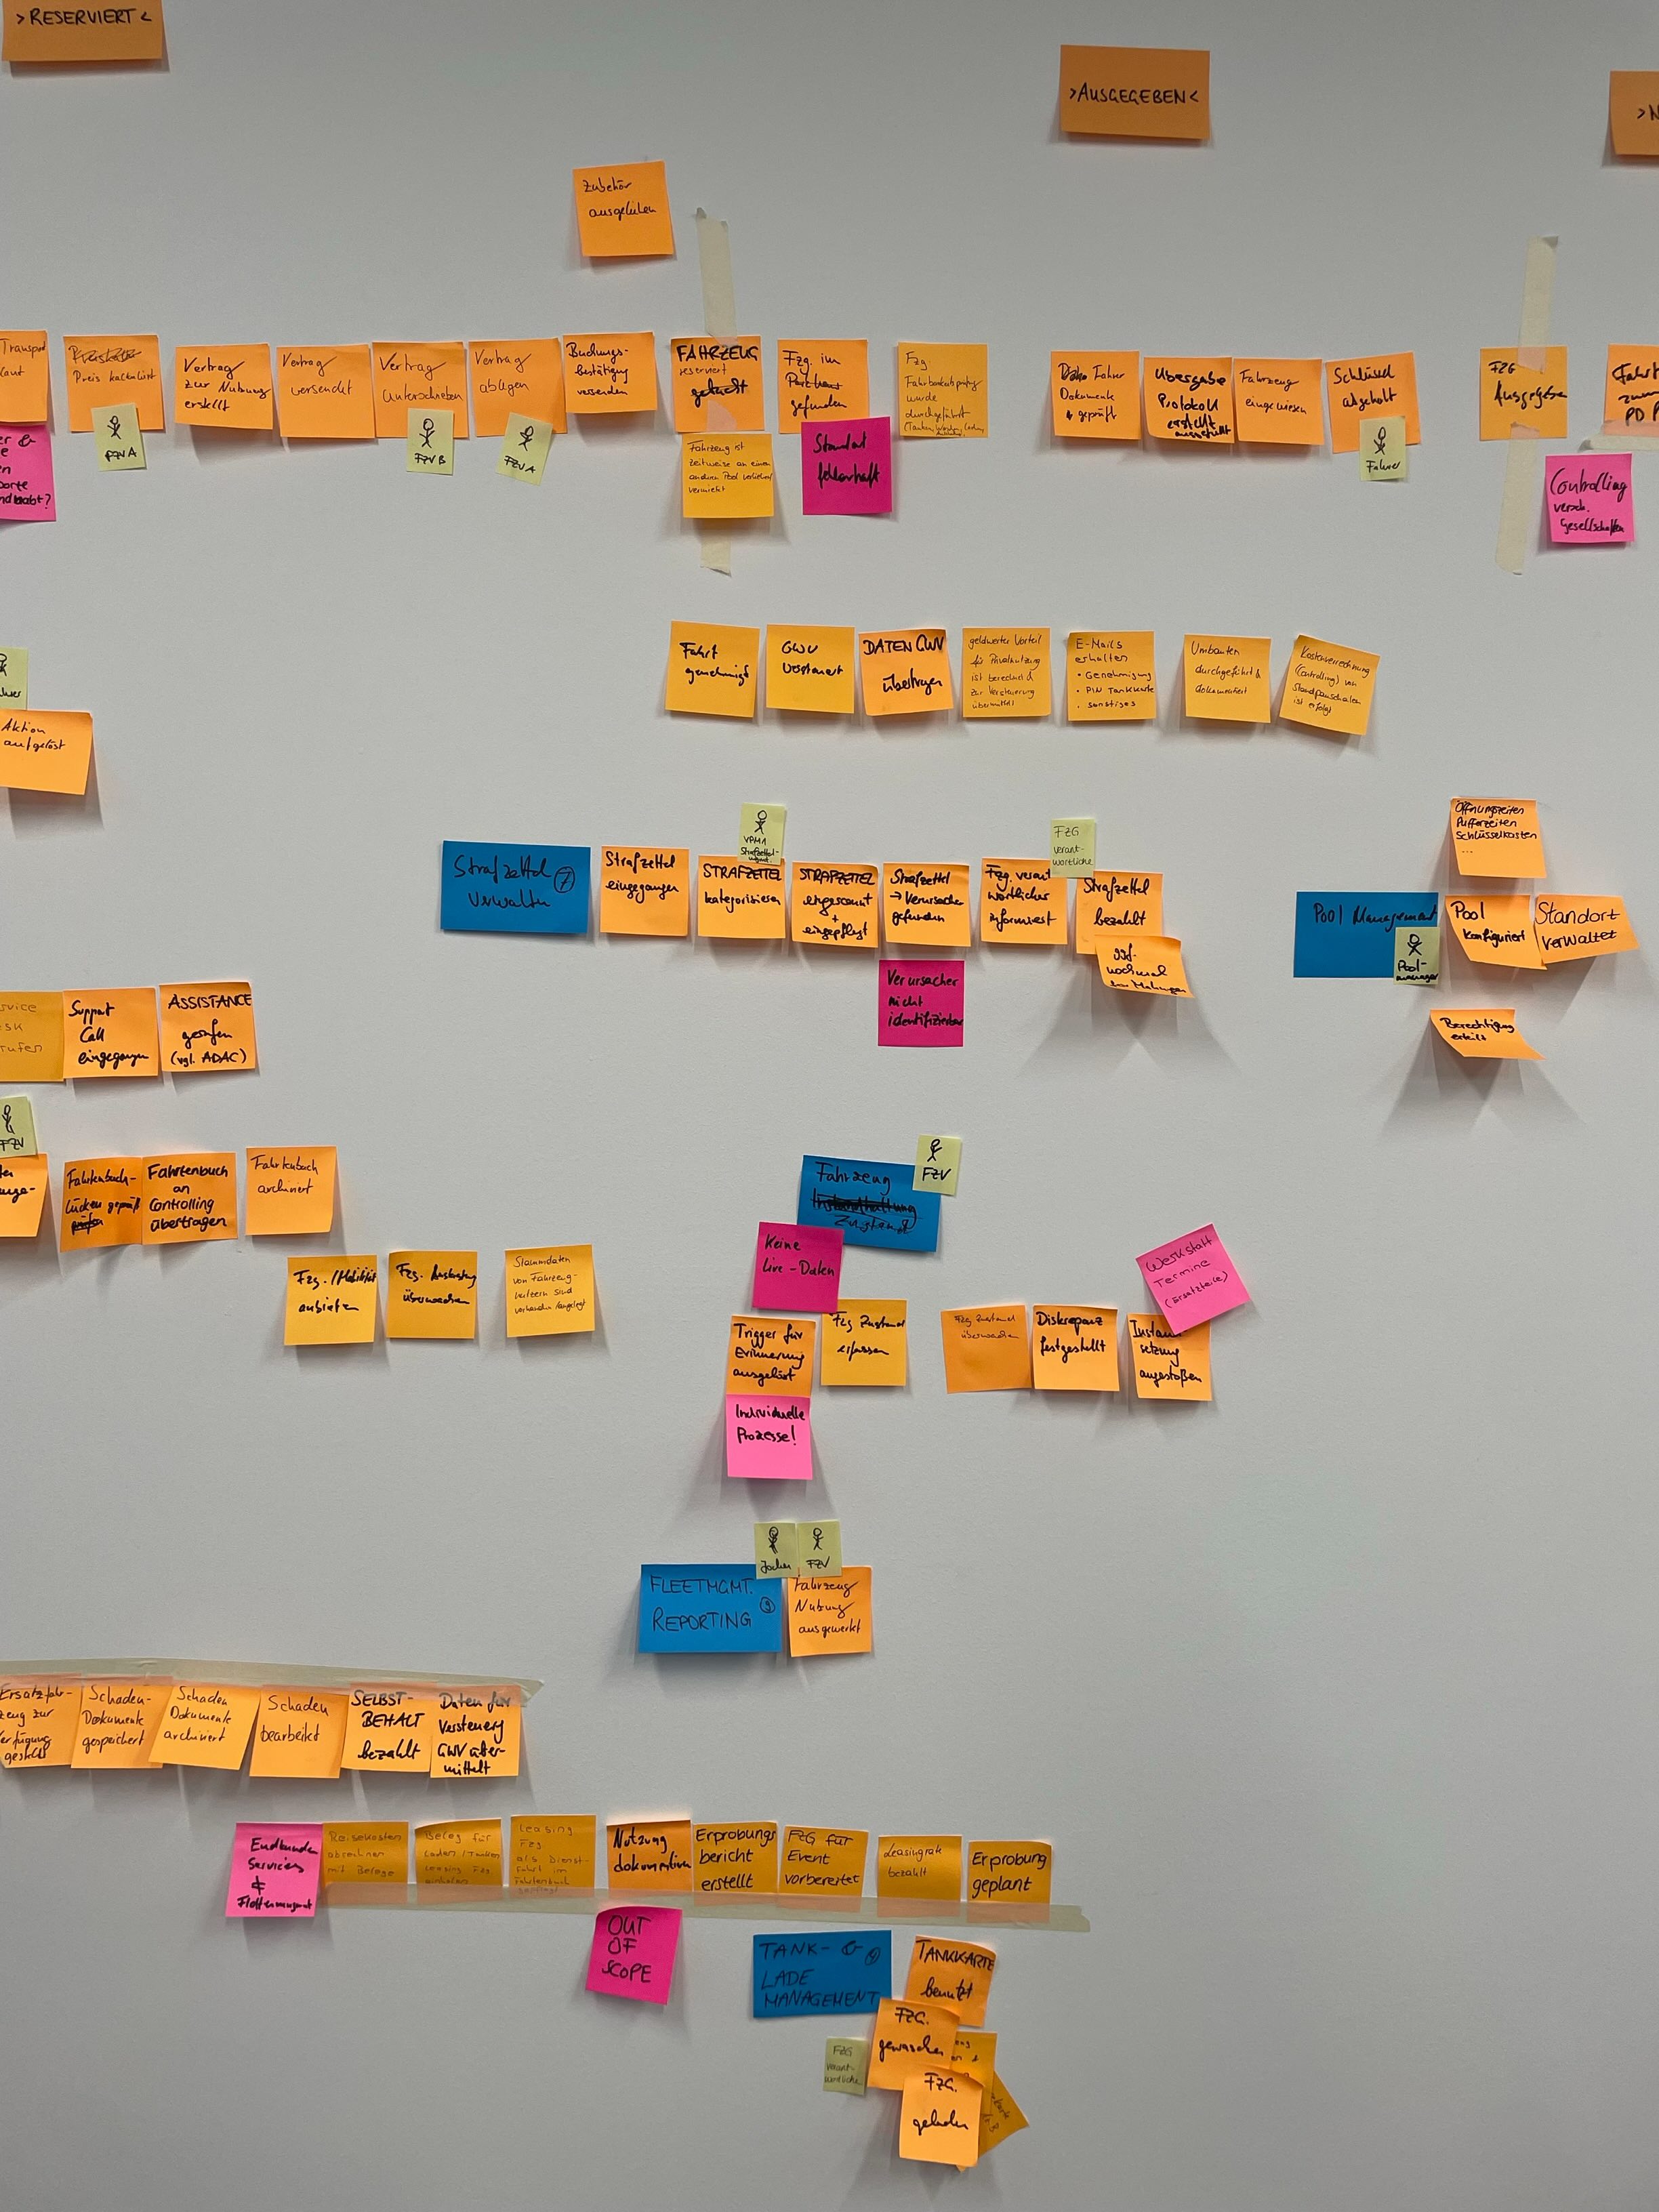 >RESERVIERT<
>AUSGEGEBEN<
>N
Zubehör
ausgeliehen
Transport
Preis kalkuliert
FZVA
Vertrag
zur Nutzung
erstellt
Vertrag
versendet
Vertrag
unterschrieben
FZVB
Vertrag
ablegen
FZVA
Buchungs-
bestätigung
versenden
FAHRZEUG
reserviert
gebucht
Fahrzeug ist
zeitweise an einen
anderen Pool verliehen/
vermietet
Fzg. im
Parkhaus
gefunden
Standort
fehlerhaft
Fzg.
wurde
durchgeführt
Fahrer
Dokumente
geprüft
Übergabe
Protokoll
erstellt
ausgefüllt
Fahrzeug
eingewiesen
Schlüssel
abgeholt
Fahrer
FZG
Ausgegeben
Fahrt
zum
PD P
Controlling
versch.
Gesellschaften
Fahrt
genehmigt
GWV
versteuert
DATEN GWV
übertragen
geldwerter Vorteil
für Privatnutzung
ist berechnet &
zur Versteuerung
übermittelt
E-Mails
erhalten
• Genehmigung
• PIN Tankkarte
• sonstiges
Umbauten
durchgeführt &
dokumentiert
Kostenverrechnung
(Controlling) von
Standpauschalen
ist erfolgt
Aktion
aufgelöst
Strafzettel
verwalten
7
Strafzettel
eingegangen
STRAFZETTEL
kategorisieren
STRAFZETTEL
eingescannt
+
eingepflegt
Strafzettel
→ Verursacher
gefunden
Verursacher
nicht
identifizierbar
Fzg. verant
wortlicher
informiert
FZG
verant-
wortliche
Strafzettel
bezahlt
ggf.
nochmal
Mahnungen
Öffnungszeiten
Pufferzeiten
Schlüsselkosten
...
Pool Management
Pool-
manager
Pool
konfiguriert
Standort
verwaltet
Berechtigung
erteilt
Support
Call
eingegangen
ASSISTANCE
gerufen
(vgl. ADAC)
FZV
Fahrtenbuch-
lücken geprüft
prüfen
Fahrtenbuch
an
Controlling
übertragen
Fahrtenbuch
archiviert
Fzg./Mobilität
anbieten
Fzg. Auslastung
überwachen
Stammdaten
von Fahrzeug-
haltern sind
vorhanden/angelegt
Fahrzeug
Instandhaltung
Zustand
FZV
Keine
Live-Daten
Trigger für
Erinnerung
ausgelöst
Fzg Zustand
erfassen
Individuelle
Prozesse!
Fzg Zustand
überwachen
Diskrepanz
festgestellt
Instand
setzung
angestoßen
Werkstatt
Termine
(Ersatzteile)
FLEETMGMT.
REPORTING
9
Jochen
FZV
Fahrzeug
Nutzung
ausgewertet
Ersatzfahr-
zeug zur
Verfügung
gestellt
Schaden-
Dokumente
gespeichert
Schaden
Dokumente
archiviert
Schaden
bearbeitet
SELBST-
BEHALT
bezahlt
Daten für
Versteuerg
GWV über-
mittelt
Endkunden
Services
&
Flottenmanagement
Reisekosten
abrechnen
mit Belege
Beleg für
Laden/Tanken
Leasing Fzg.
Leasing
Fzg.
als Dienst-
fahrt im
Fahrtenbuch
gepflegt
Nutzung
dokumentieren
Erprobungs
bericht
erstellt
FZG für
Event
vorbereitet
Leasingrate
bezahlt
Erprobung
geplant
OUT
OF
SCOPE
TANK- &
LADE
MANAGEMENT
TANKKARTE
benutzt
FZG.
gewaschen
FZG
verant-
wortliche
FZG.
geladen